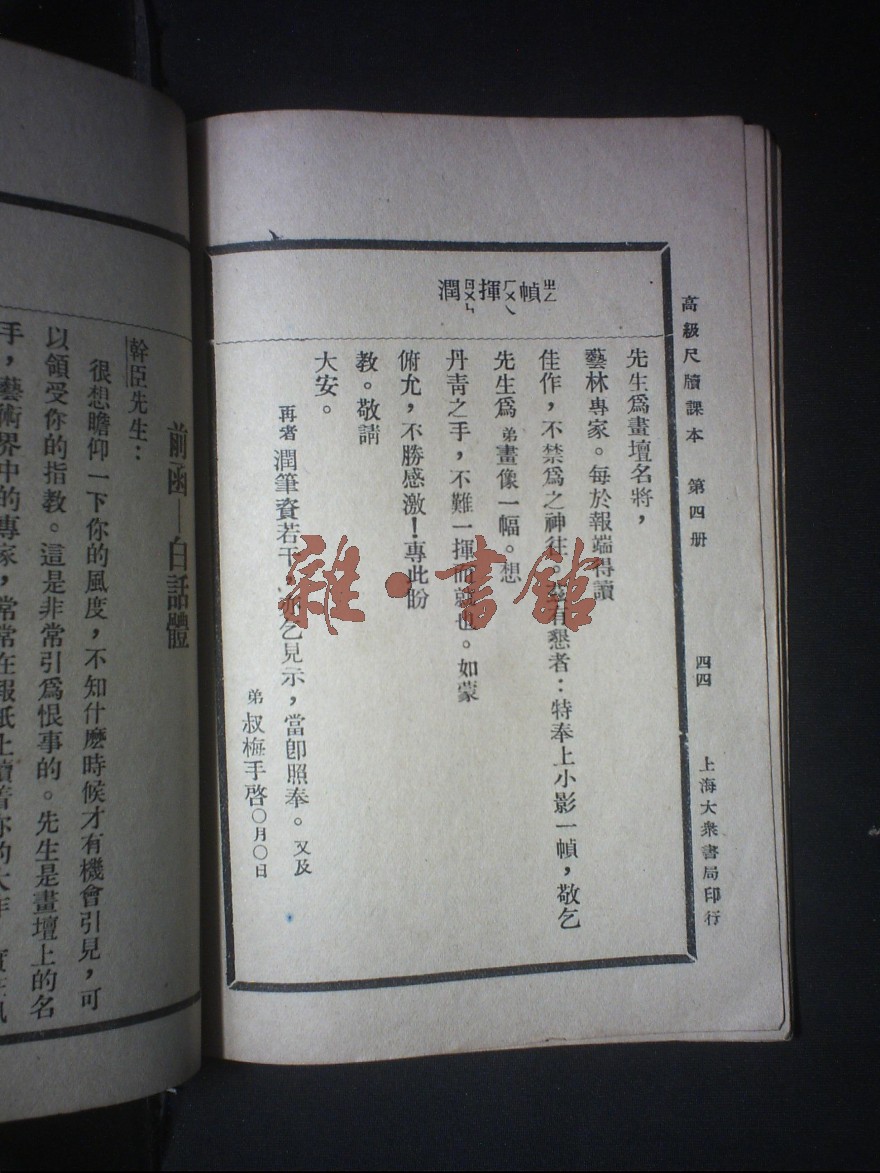 高級尺牘課本 第四册 四四 上海大衆書局印行
幀ㄓㄥ揮ㄏㄨㄟ潤ㄖㄨㄣ
先生爲畫壇名將，
藝林專家。每於報端得讀
佳作，不禁爲之神往。茲有懇者：特奉上小影一幀，敬乞
先生爲弟畫像一幅。想
丹青之手，不難一揮而就也。如蒙
俯允，不勝感激！專此盼
教。敬請
大安。
再者潤筆資若干，亦乞見示，當卽照奉。又及
弟叔梅手啓〇月〇日
前函—白話體
幹臣先生：
很想瞻仰一下你的風度，不知什麽時候才有機會引見，可
以領受你的指教。這是非常引爲恨事的。先生是畫壇上的名
手，藝術界中的專家，常常在報紙上讀着你的大作
雜·書館